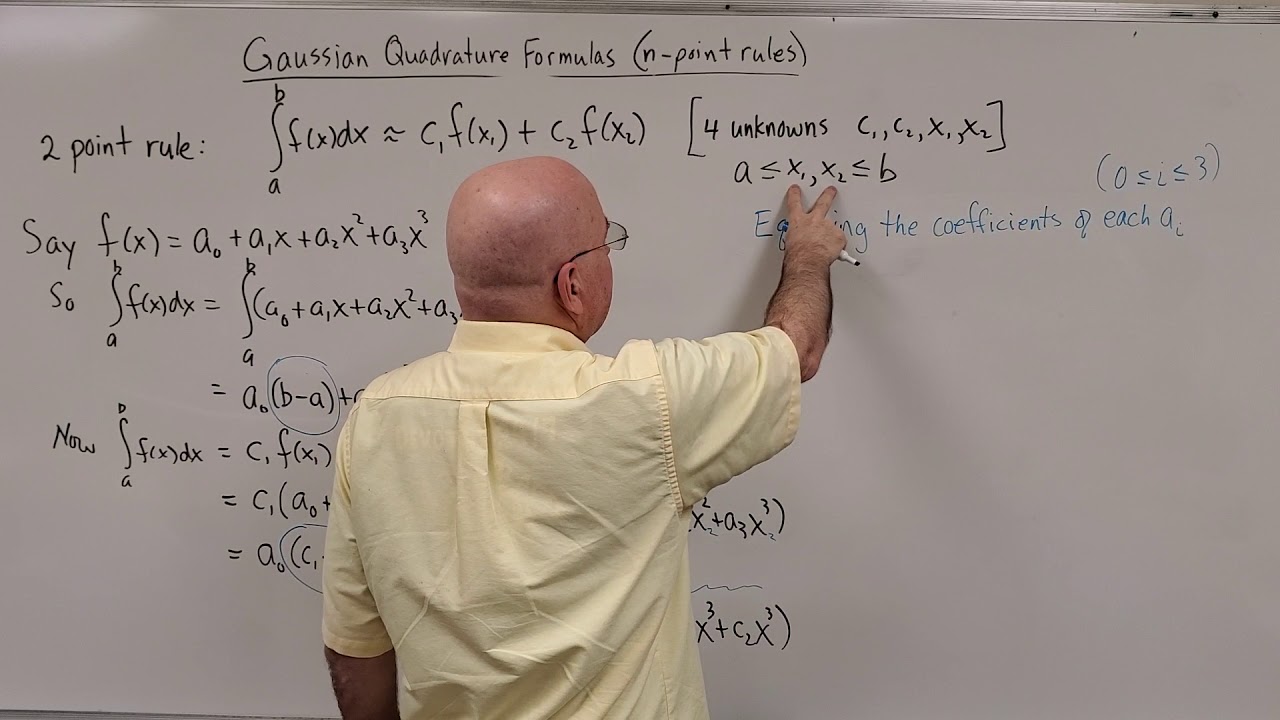 Gaussian Quadrature Formulas (n-point rules)
2 point rule: ∫ₐᵇ f(x)dx ≈ c₁f(x₁) + c₂f(x₂) [4 unknowns c₁, c₂, x₁, x₂]
a ≤ x₁, x₂ ≤ b
(0 ≤ i ≤ 3)
the coefficients of each aᵢ
Say f(x) = a₀ + a₁x + a₂x² + a₃x³
So ∫ₐᵇ f(x)dx = ∫ₐᵇ (a₀ + a₁x + a₂x² + a₃
= a₀(b-a) +
Now ∫ₐᵇ f(x)dx = c₁f(x₁)
= c₁(a₀ + x₂² + a₃x₂³)
= a₀(c₁
x³ + c₂x³)